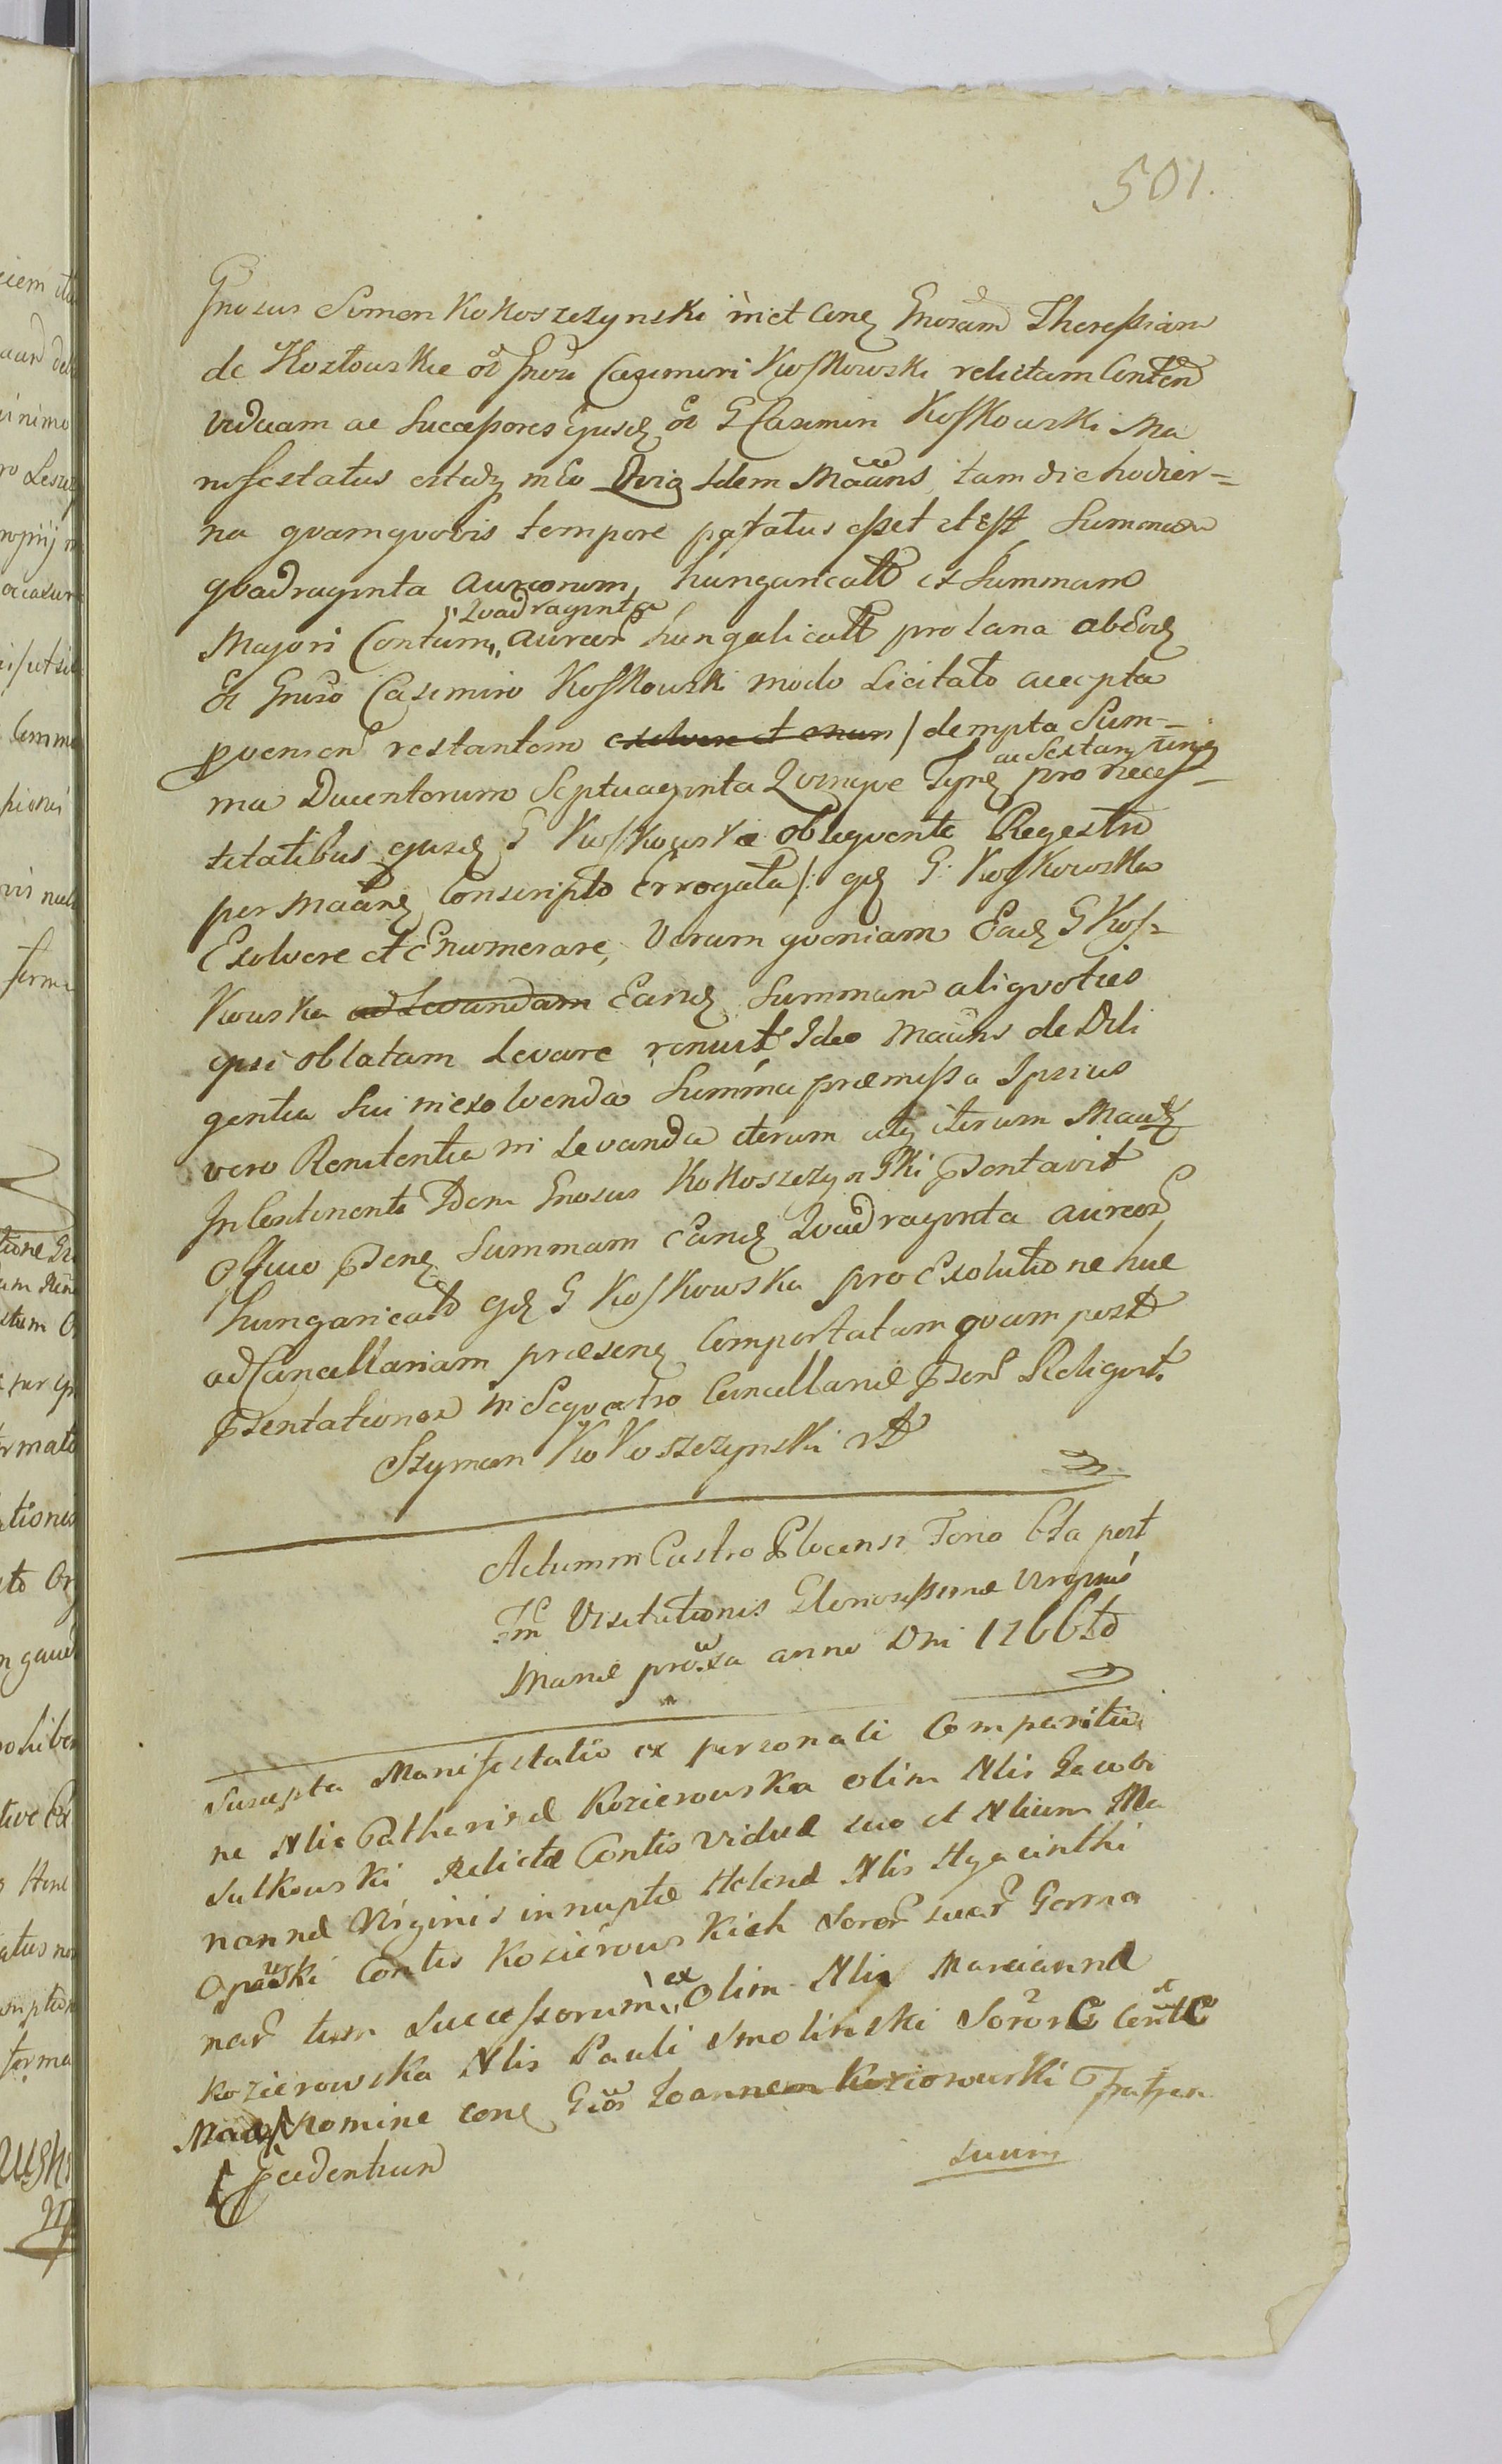 501.
Gnosus Simon Kokoszczynski in et cone Gnosam Theressiam
de Kozłowskie ol Gnosi Casimiri Kosskowski relictam Conten
viduam ac Successores ejusd ol G Casimiri Kosskowski Ma
nifestatus estadq in Eo Quia Idem Maans tam die hodier=
na quamquovis tempore paratus esset et Est Summam
quadraginta aureorum, hungaricalt ex Summam
"Quadraginta
Majori Centum,, aureor hungalicalt pro lana ab Eod
Ol Gnoso Casimiro Kosskowski modo Licitato accepta
pvenien restantem exolvere et enum / dempta Sum-
ac Sextam
ma Ducentorum Septuaginta Quinque Tynf pro neces-
sitatibus ejusd G Kosskowska obloquente Regestro
per Maane Conscripto Errogata /: gd G: Kosskowska
Exolvere et Enumerare, Verum quoniam Ead G Kos-
kowska ad Levandam Eand Summam aliquoties
ipsi oblatam Levare renuit, Ideo Maans de Dili
gentia Sui in exolvenda Summa præmissa Ipsius
vero Renitentia in Levanda iterum atq iterum
In Continenti Idem Gnosus Kokoszczynski Psentavit
Officio Psene Summam Eand Quadraginta aureor
hungaricalt gd G Koskowska pro Exolutione huc
ad Cancellariam præsene Comportatam quam post
Psentationem in Sequestro Cancellariæ Psens Reliquit.
Szyman KoKoszczynski
Actum in Castro Plocensi Feria 6ta post
Fm Visitationis Gloriosissimæ Virginis
Mariæ proxa anno Dni 1766to
Suscepta Manifestatio ex personali Comparitio
ne Nlis Catharinæ Kozierowska olim Nlis Jacobi
Sulkowski Relictæ Contis Viduæ suo et Nlium Ma
riannæ Virginis innuptæ Helenæ Nlis Hyacinthi
Opawski Contis Kozierowskich Soror suar Germa
nar tum Successorum,, ex Olim Nlis Mariannæ
Kozierowska Nlis Pauli Smolinski Sororis Contis
Nomine cone Gsos Joannem Kozierowski Fratrem
Suum
Pcedentium